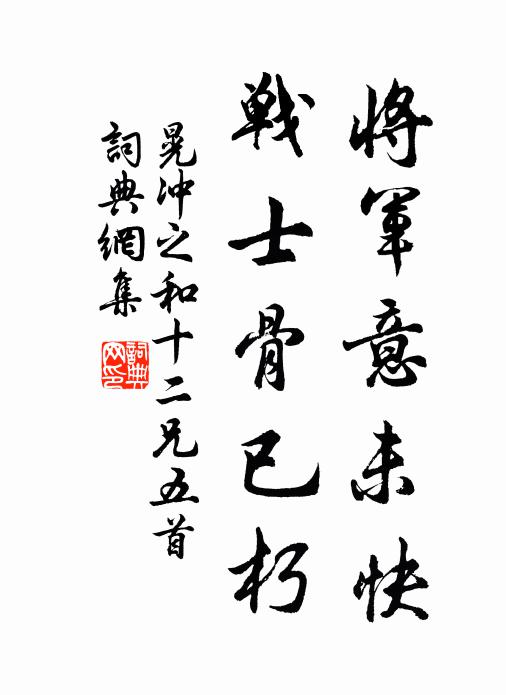 將軍意未快
戰士骨已朽
晁冲之和十二兄五首
詞典網集
詞典網印